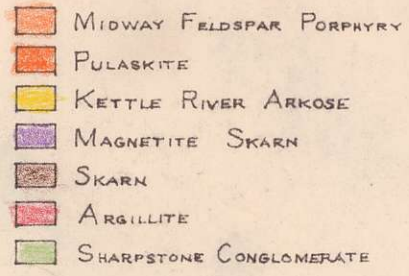 MIDWAY FELDSPAR PORPHYRY
PULASKITE
KETTLE RIVER ARKOSE
MAGNETITE SKARN
SKARN
ARGILLITE
SHARPSTONE CONGLOMERATE